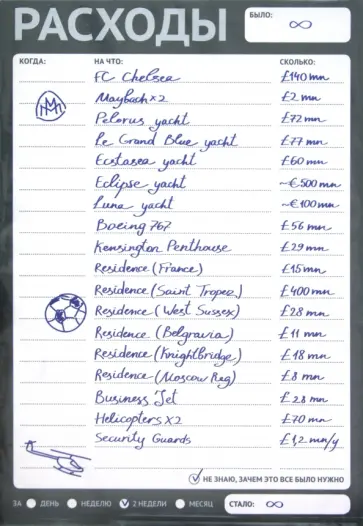 РАСХОДЫ
БЫЛО: ∞
КОГДА: НА ЧТО: СКОЛЬКО:
FC Chelsea £140 mn
Maybach x2 £2 mn
Pelorus yacht £72 mn
Le Grand Blue yacht £77 mn
Ecstasea yacht £60 mn
Eclipse yacht ~€500 mn
Luna yacht ~€100 mn
Boeing 767 £56 mn
Kensington Penthouse £29 mn
Residence (France) £15 mn
Residence (Saint Tropez) £400 mn
Residence (West Sussex) £28 mn
Residence (Belgravia) £11 mn
Residence (Knightbridge) £18 mn
Residence (Moscow Reg) £8 mn
Business Jet £28 mn
Helicopters x2 £70 mn
Security Guards £1,2 mn/y
НЕ ЗНАЮ, ЗАЧЕМ ЭТО ВСЕ БЫЛО НУЖНО
ЗА ДЕНЬ НЕДЕЛЮ 2 НЕДЕЛИ МЕСЯЦ СТАЛО: ∞